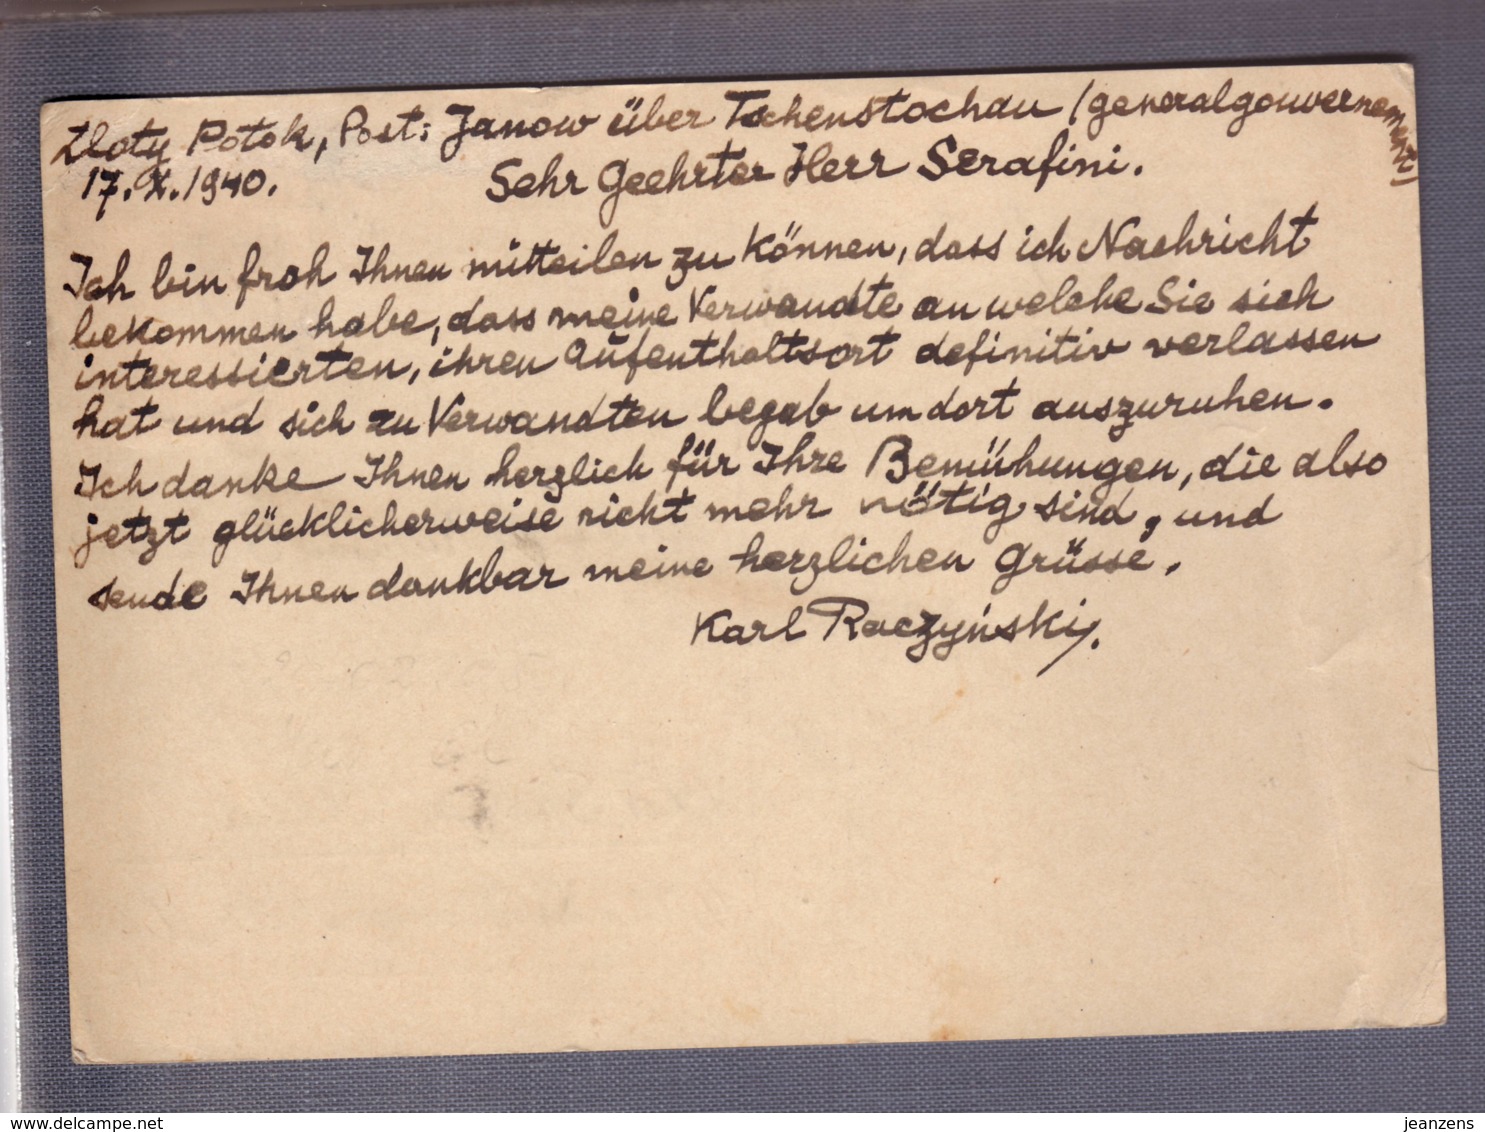 Zloty Potok, Post: Janow über Tschenstochau / generalgouvernement
17. X. 1940. Sehr Geehrter Herr Serafini.
Ich bin froh Ihnen mitteilen zu können, dass ich Nachricht
bekommen habe, dass meine Verwandte an welche Sie sich
interessierten, ihren Aufenthaltsort definitiv verlassen
hat und sich zu Verwandten begab um dort auszuruhen.
Ich danke Ihnen herzlich für Ihre Bemühungen, die also
jetzt glücklicherweise nicht mehr nötig sind, und
sende Ihnen dankbar meine herzlichen Grüsse.
Karl Raczyński.
www.delcampe.net
jeanzens